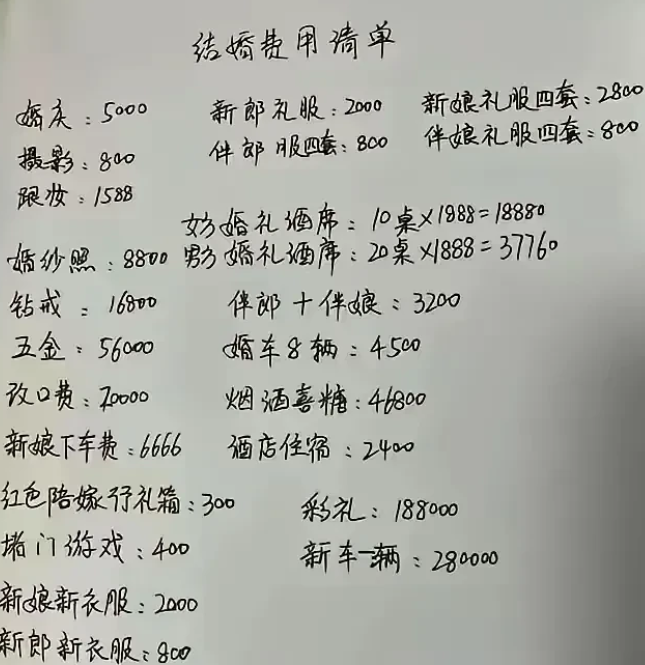 结婚费用清单
婚庆：5000 新郎礼服：2000 新娘礼服四套：2800
摄影：800 伴郎服四套：800 伴娘礼服四套：800
跟妆：1588
女方婚礼酒席：10桌×1888=18880
婚纱照：8800 男方婚礼酒席：20桌×1888=37760
钻戒：16800 伴郎+伴娘：3200
五金：56000 婚车8辆：4500
改口费：20000 烟酒喜糖：46800
新娘下车费：6666 酒店住宿：2400
红色陪嫁行礼箱：300 彩礼：188000
堵门游戏：400 新车一辆：280000
新娘新衣服：2000
新郎新衣服：800